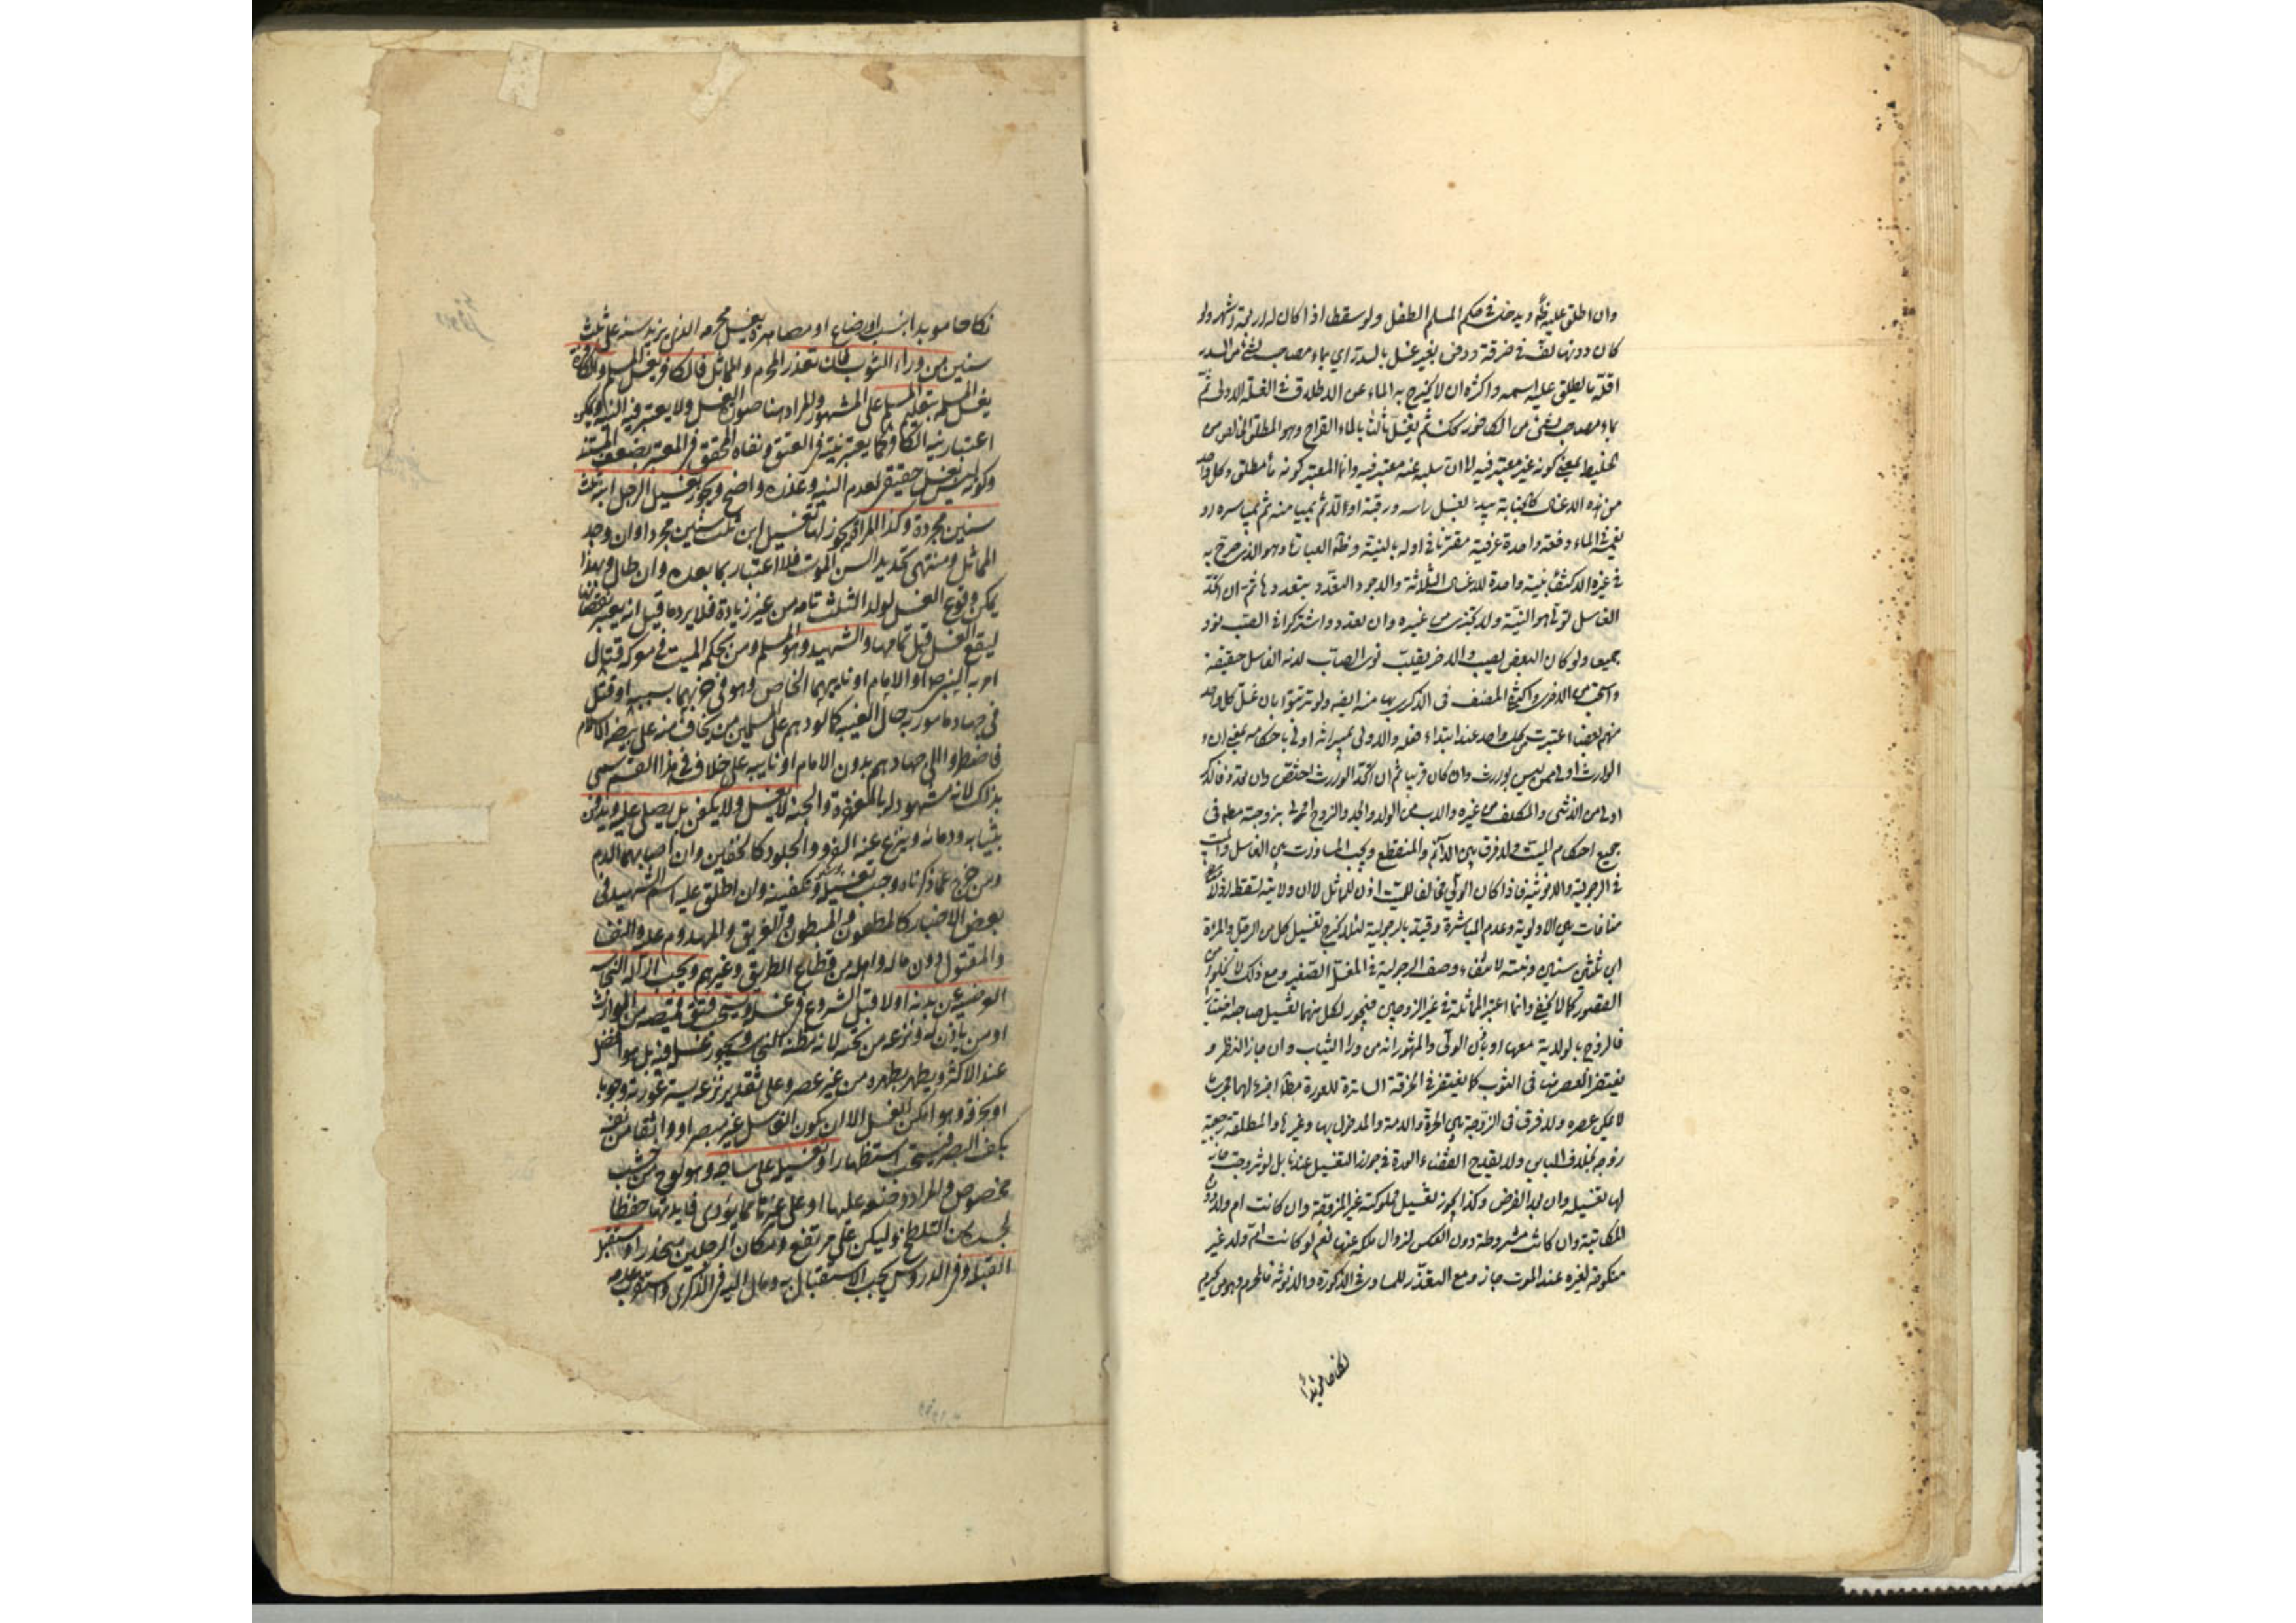 وان اطلق عليه ظ ويدخل في حكم المسلم الطفل ولو سقطا اذا كان له اربعة اشهر ولو
كان دونها لف في خرقة ودفن بغير غسل بالسدر اي بماء مصاحب لشئ من السدر
اقله ما يطلق عليه اسمه واكثره ان لا يخرج به الماء عن الاطلاق في الغسلة الاولى ثم
بماء مصاحب لشئ من الكافور كك ثم يغسل ثالثا بالماء القراح وهو المطلق الخالص من
الخليط بمعنى كونه غير معتبر فيه لا ان سلبه عنه معتبر فيه وانما المعتبر كونه ماء مطلق وكل واحد
من هذه الاغسال كالجنابة يبدء بغسل راسه ورقبته اولا ثم بميامنه ثم بمياسره او
بغمسه الماء دفعة واحدة عرفية مقترنا في اوله بالنية وظ العبارة وهو الذي صرح به
في غيره الاكتفاء بنية واحدة للاغسال الثلاثة والاجود التعدد بتعددها ثم ان اتحد
الغاسل تولى هو النية ولا يجزى من غيره وان تعدد واشتركوا في الصب نووا
جميعا ولو كان البعض يصب والاخر يقلب نوى الصاب لانه الغاسل حقيقة
واستحب من الاخر واكتفى المصنف في الذكرى بها منه ايضا ولو ترتبوا بان غسل كل واحد
منهم بعضا اعتبرت من كل واحد عند ابتداء فعله والاولى بميراثه اولى باحكامه بمعنى ان
الوارث اولى ممن ليس بوارث وان كان قريبا ثم ان اتحد الوارث اختص وان تعدد فالذكر
اولى من الانثى والمكلف من غيره والاب من الولد والجد والزوج اولى بزوجته مطلقا في
جميع احكام الميت ولا فرق بين الدائم والمنقطع ويجب المساواة بين الغاسل والميت
في الرجولية والانوثية فاذا كان الولي مخالفا للميت اذن للمماثل لا ان ولايته تسقط اذ لا
منافات بين الاولوية وعدم المباشرة وقيد بالرجولية لئلا يخرج تغسيل كل من الرجل والمراة
ابن ثلث سنين وبنته لانتفاء وصف الرجولية في المغسل الصغير ومع ذلك لا يخلو من
القصور كما لا يخفى وانما اعتبر المماثلة في غير الزوجين فيجوز لكل منهما تغسيل صاحبه اختيارا
فالزوج بالولاية معها او باذن الولي والمشهور انه من وراء الثياب وان جاز النظر و
يغتفر العصر هنا في الثوب كما يغتفر في الخرقة الساترة للعورة مطلقا اجراء لهما مجرى
لا يمكن عصره ولا فرق في الزوجة بين الحرة والامة والمدخول بها وغيرها والمطلقة رجعية
زوجة بخلاف الباين ولا يقدح انقضاء العدة في جواز التغسيل عندنا بل لو تزوجت جاز
لها تغسيله وان بعد الفرض وكذا يجوز تغسيل مملوكته غير المزوجة وان كانت ام ولد دون
المكاتبة وان كانت مشروطة دون العكس لزوال ملكه عنها نعم لو كانت ام ولد غير
منكوحة لغيره عند الموت جاز ومع التعذر للمساوي في الذكورة والانوثة فالمحرم وهو من يحرم
نكاحها مؤبدا
نكاحها مؤبدا بنسب او رضاع او مصاهرة يغسل محرمه الذي يزيد سنه على ثلث
سنين من وراء الثوب فان تعذر المحرم والمماثل فالكافر يغسل المسلم والكافرة
يغسل المسلمة بتعليم المسلم على المشهور والمراد هنا صورة الغسل ولا يعتبر فيه النية ويمكن
اعتبار نية الكافر كما يعتبر نيته في العتق ونفاه المحقق في المعتبر بضعف المستند
وكونه ليس بغسل حقيقي لعدم النية وعذره واضح ويجوز تغسيل الرجل ابنة ثلث
سنين مجردة وكذا المراة يجوز لها تغسيل ابن ثلث سنين مجردا وان وجد
المماثل ومنتهى تحديد السن الموت فلا اعتبار بما بعده وان طال وبهذا
يمكن وقوع الغسل لولد الثلث تامة من غير زيادة فلا يرد ما قيل انه يعتبر نقصانها
ليقع الغسل قبل تمامها والشهيد وهو المسلم ومن بحكمه الميت في معركة قتال
امر به النبي ص او الامام او نايبهما الخاص وهو في حزبهما بسببه او قتل
في جهاد مامور به حال الغيبة كما لو دهم على المسلمين من يخاف منه على بيضة الاسلام
فاضطروا الى جهادهم بدون الامام او نايبه على خلاف في هذا القسم سمي
بذلك لانه مشهود له بالمغفرة والجنة لا يغسل ولا يكفن بل يصلى عليه ويدفن
بثيابه ودمائه وينزع عنه الفرو والجلود كالخفين وان اصابهما الدم
ومن خرج عما ذكرناه وجب تغسيله وتكفينه وان اطلق عليه اسم الشهيد في
بعض الاخبار كالمطعون والمبطون والغريق والمهدوم عليه والنفساء
والمقتول دون ماله واهله من قطاع الطريق وغيرهم ويجب ازالة النجاسة
العرضية عن بدنه اولا قبل الشروع في غسله ويستحب فتق قميصه من الوارث
او من ياذن له ونزعه من تحته لانه مظنة النجاسة ويجوز غسله فيه بل هو افضل
عند الاكثر ويطهر بطهره من غير عصر وعلى تقدير نزعه يستر عورته وجوبا
او بخرقة وهو امكن للغسل الا ان يكون الغاسل غير مبصر او واثقا من نفسه
بكف البصر فيستحب استظهارا وتغسيله على ساجة وهو لوح من خشب
مخصوص والمراد وضعه عليها او على غيرها مما يؤدى فايدتها حفظا
لجسده من التلطخ وليكن على مرتفع ومكان الرجلين منحدرا مستقبل
القبلة وفي الدروس يجب الاستقبال به ومال اليه في الذكرى واستقرب عدمه